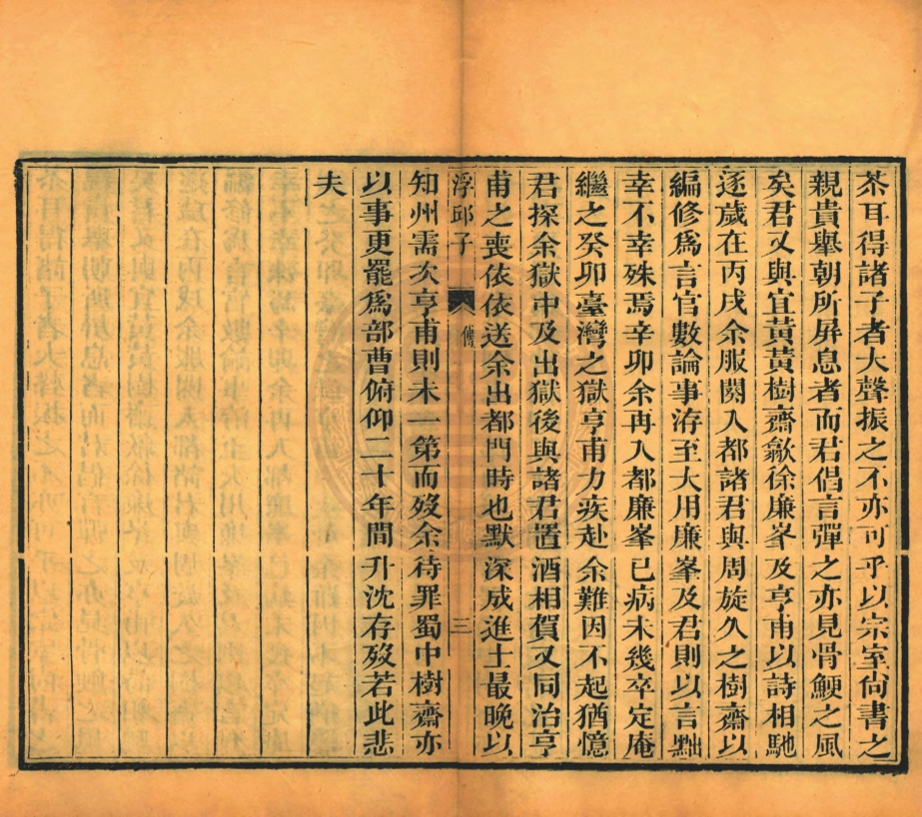 苶耳得諸子者大聲振之不亦可乎以宗室尙書之
親貴舉朝所屏息者而君倡言彈之亦見骨鯁之風
矣君又與宜黃黃樹齋歙徐廉峯及亨甫以詩相馳
逐歲在丙戌余服闋入都諸君與周旋久之樹齋以
編修爲言官數論事洊至大用廉峯及君則以言黜
幸不幸殊焉辛卯余再入都廉峯已病未幾卒定庵
繼之癸卯臺灣之獄亨甫力疾赴余難因不起猶憶
君探余獄中及出獄後與諸君置酒相賀又同治亨
甫之喪依依送余出都門時也默深成進士最晚以
浮邱子 傳 三
知州需次亨甫則未一第而歿余待罪蜀中樹齋亦
以事更罷爲部曹俯仰二十年間升沈存歿若此悲
夫